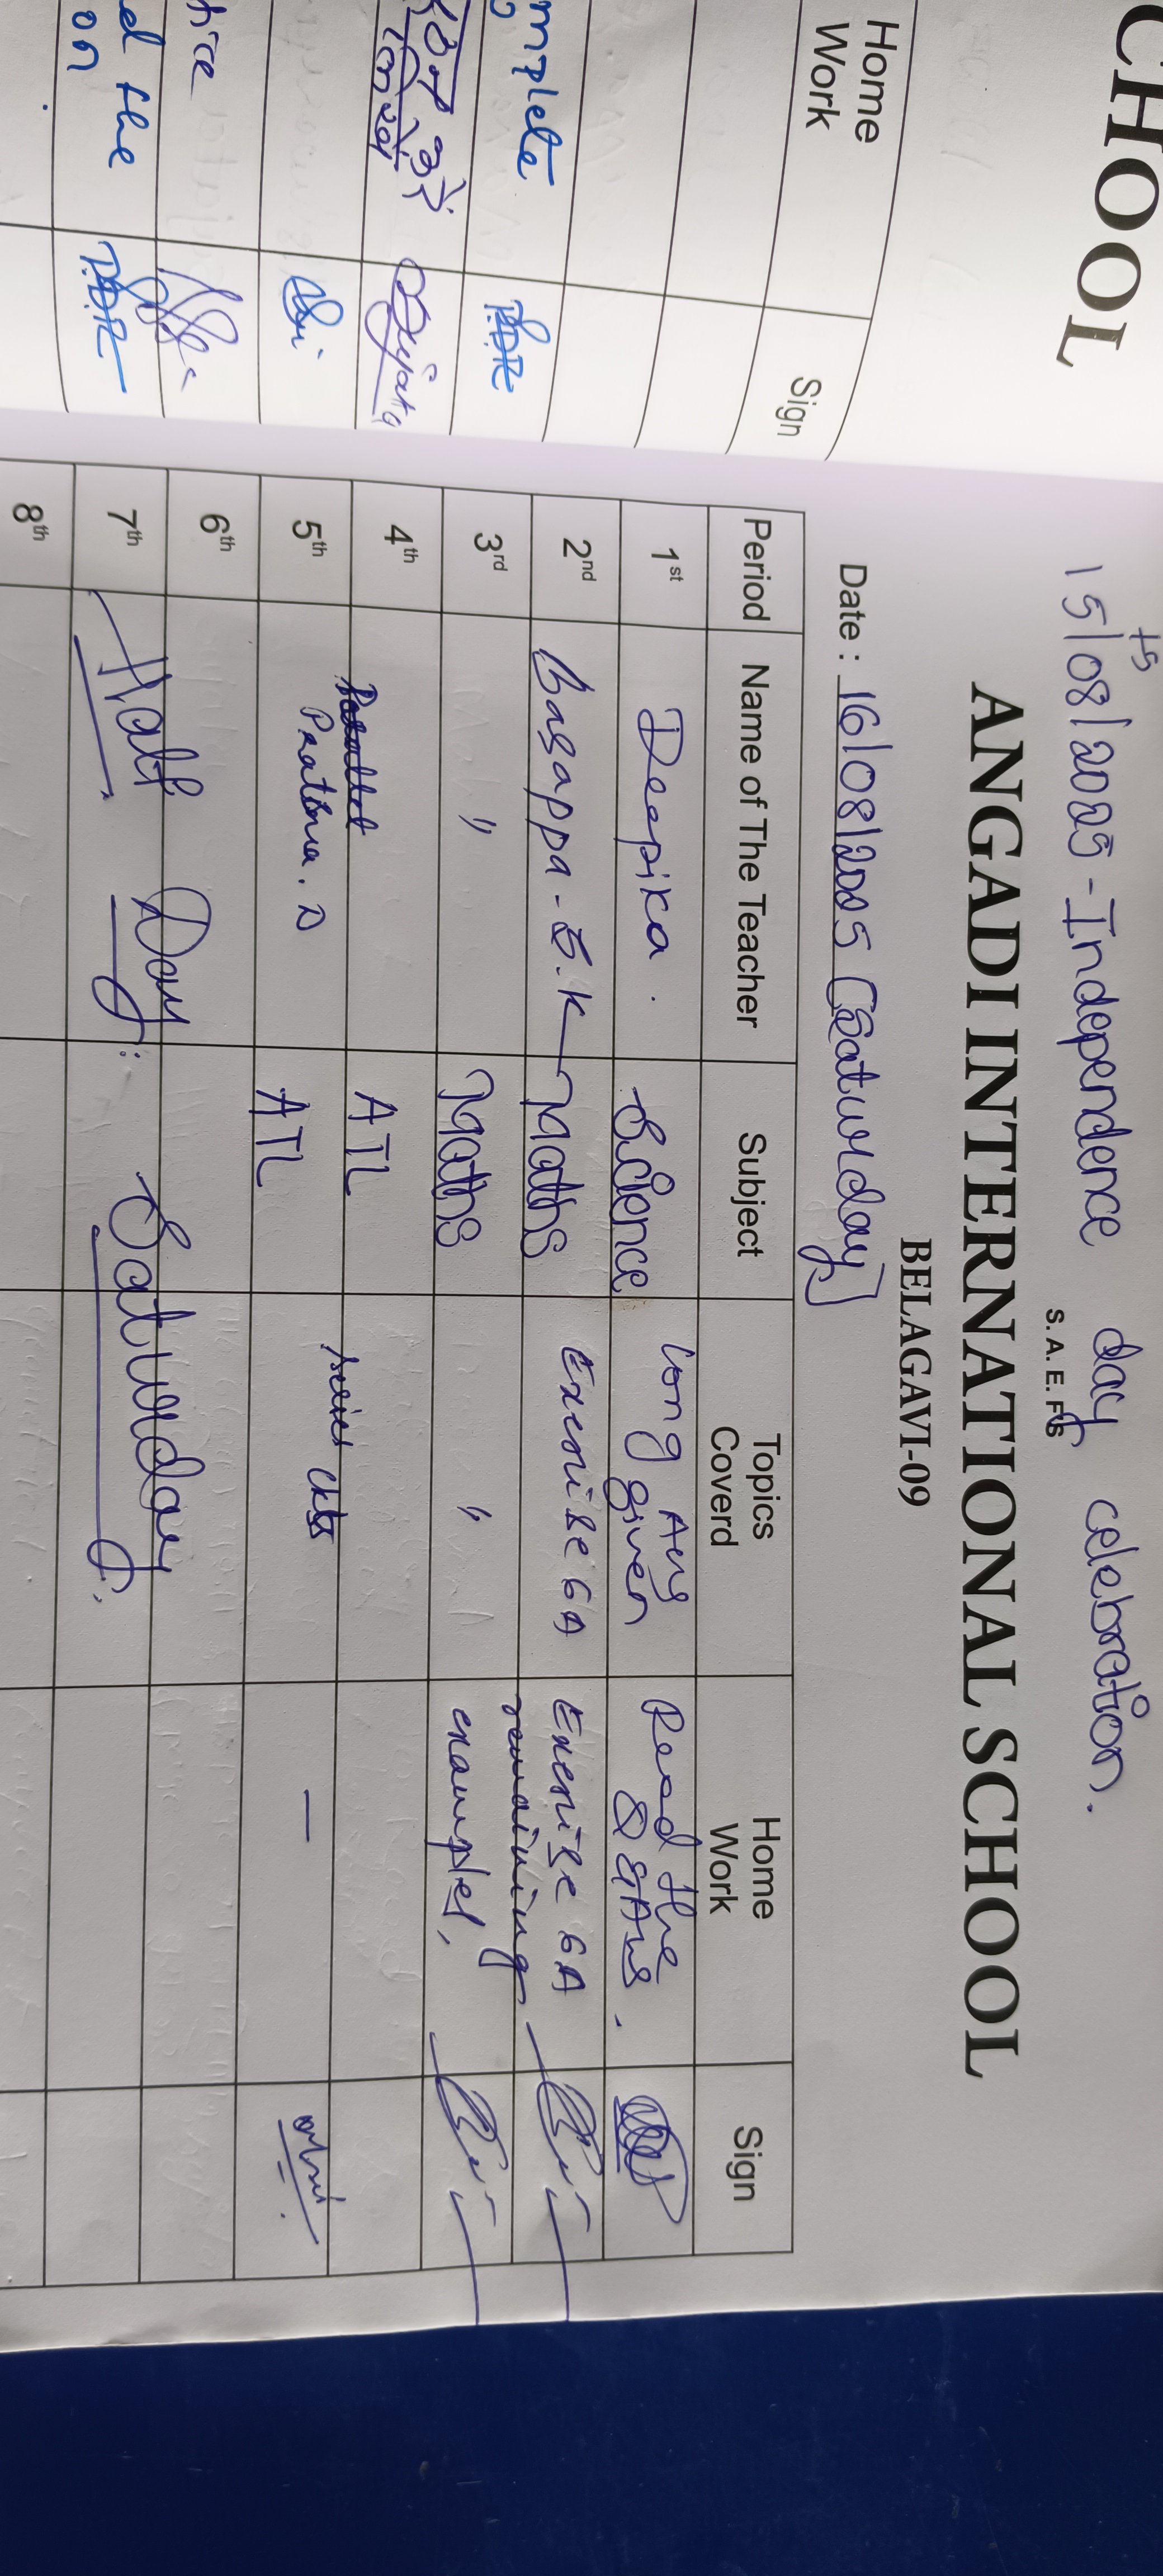 CHOOL
Home Work
Sign
mplete
करें
hice
d the
on
15/08/2025 - Independence day celebration.
S. A. E. F's
ANGADI INTERNATIONAL SCHOOL
BELAGAVI-09
Date : 16/08/2025 (Saturday)
Period Name of The Teacher Subject Topics Coverd Home Work Sign
1st Deepika. Science Long Ans given Read the Q & Ans.
2nd Basappa - S.K Maths Exercise 6A Exercise 6A
3rd " Maths " remaining examples,
4th ATL
5th Pratima. D ATL series ckts —
6th
7th Half Day: Saturday.
8th